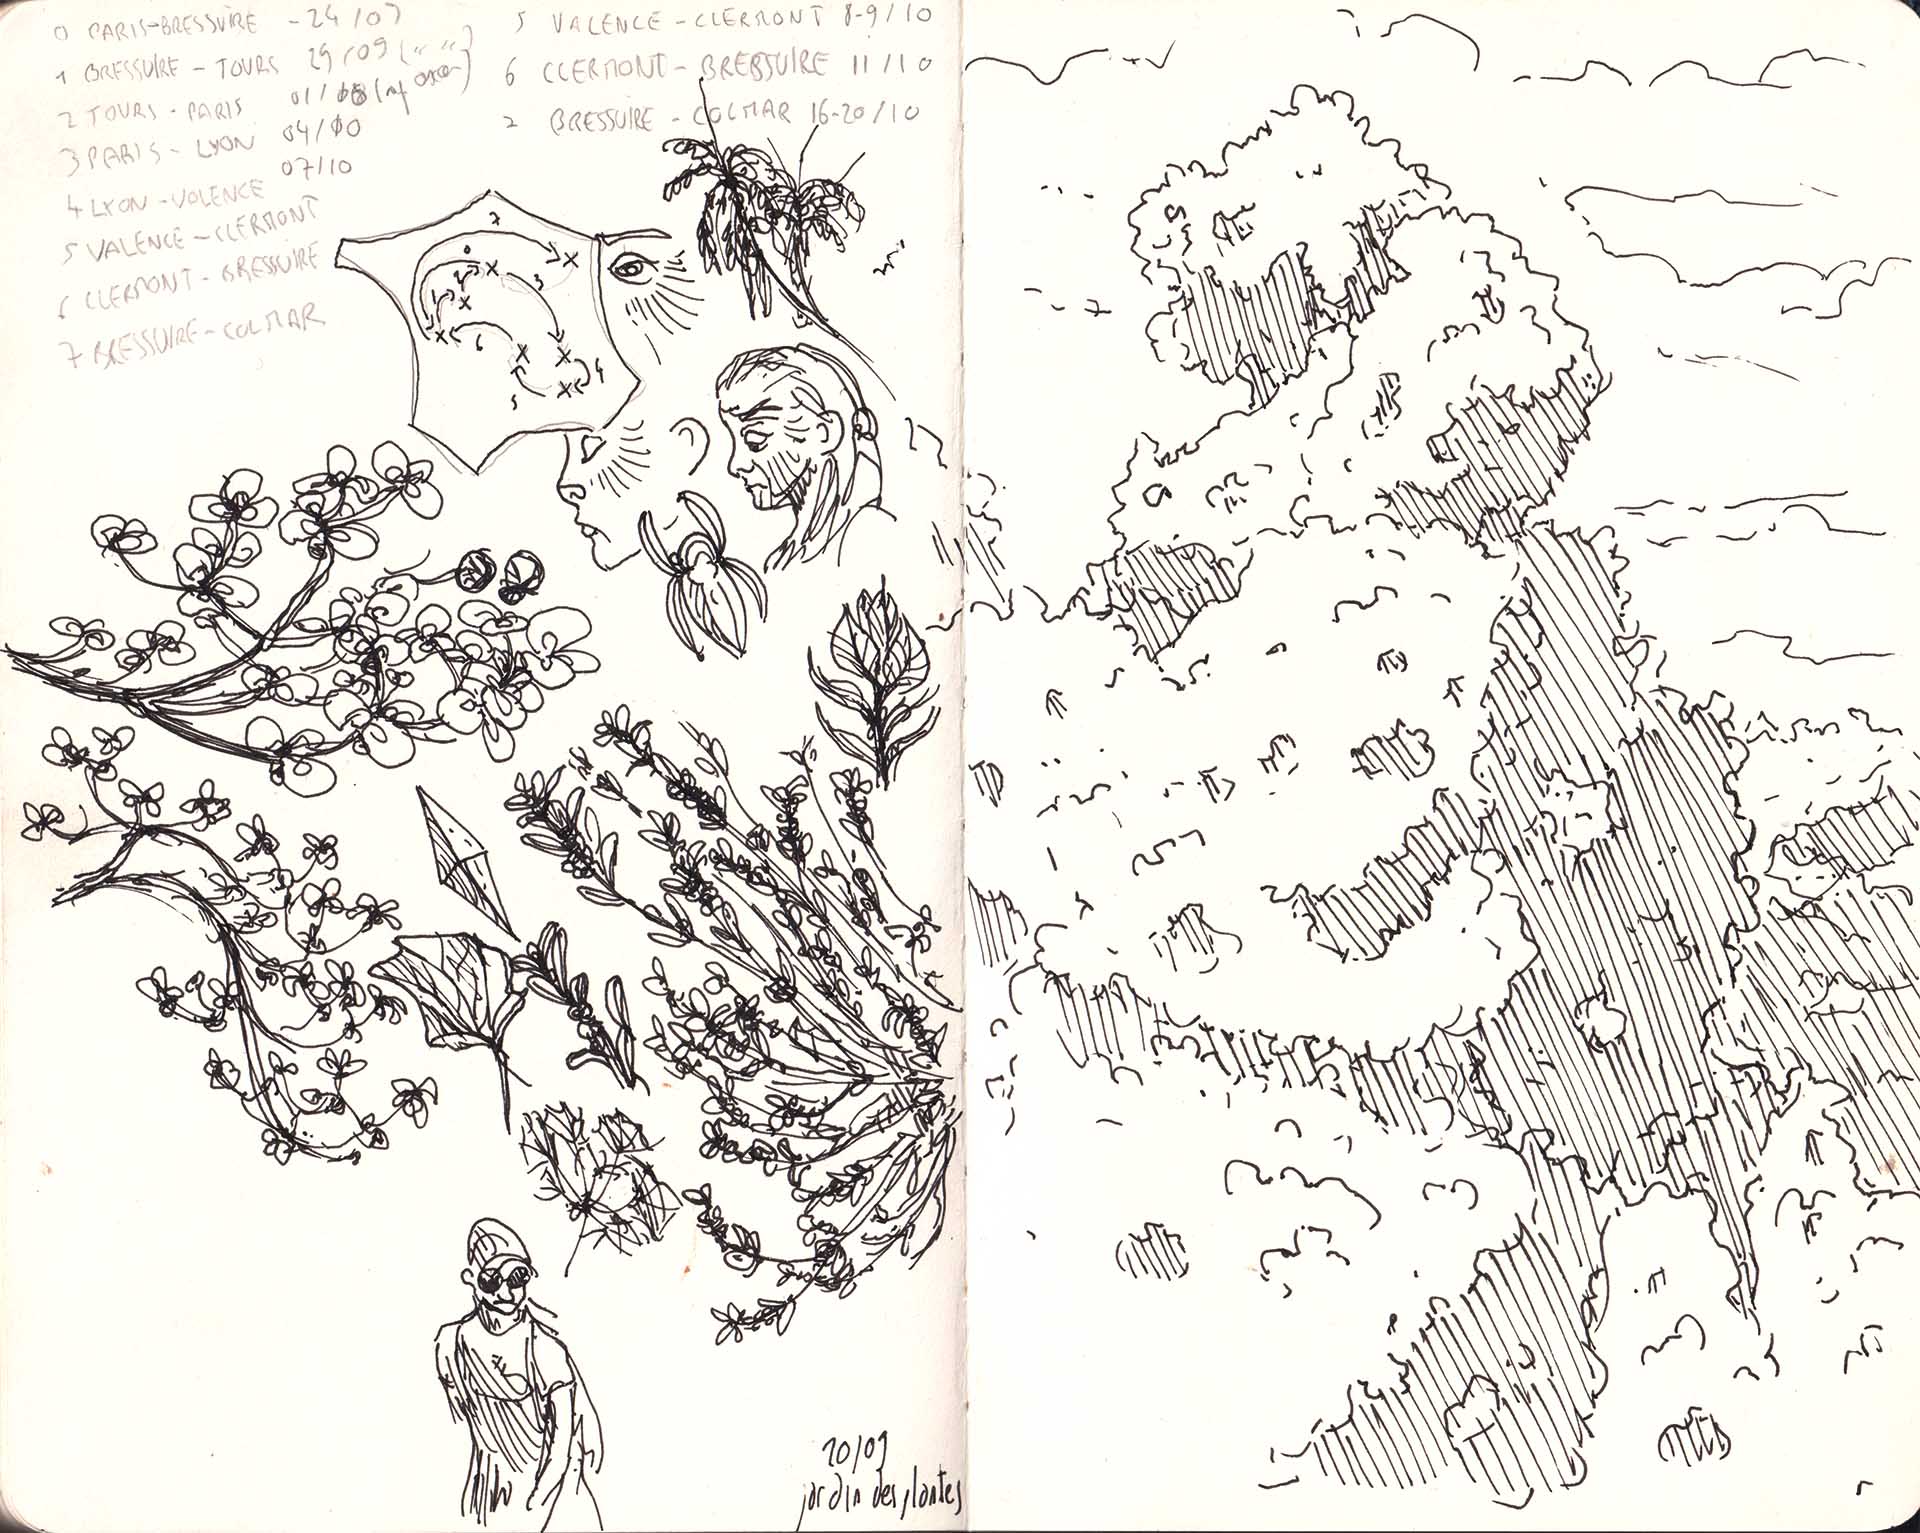 0 PARIS-BRESSUIRE - 24/09
1 BRESSUIRE - TOURS 29/09 (" ")
2 TOURS - PARIS 01/10
3 PARIS - LYON 04/10
4 LYON - VOLENCE 07/10
5 VALENCE - CLERMONT
6 CLERMONT - BRESSUIRE
7 BRESSUIRE - COLMAR
5 VALENCE - CLERMONT 8-9/10
6 CLERMONT - BRESSUIRE 11/10
7 BRESSUIRE - COLMAR 16-20/10
7
0
2
3
1
6
4
5
20/09
jardin des plantes